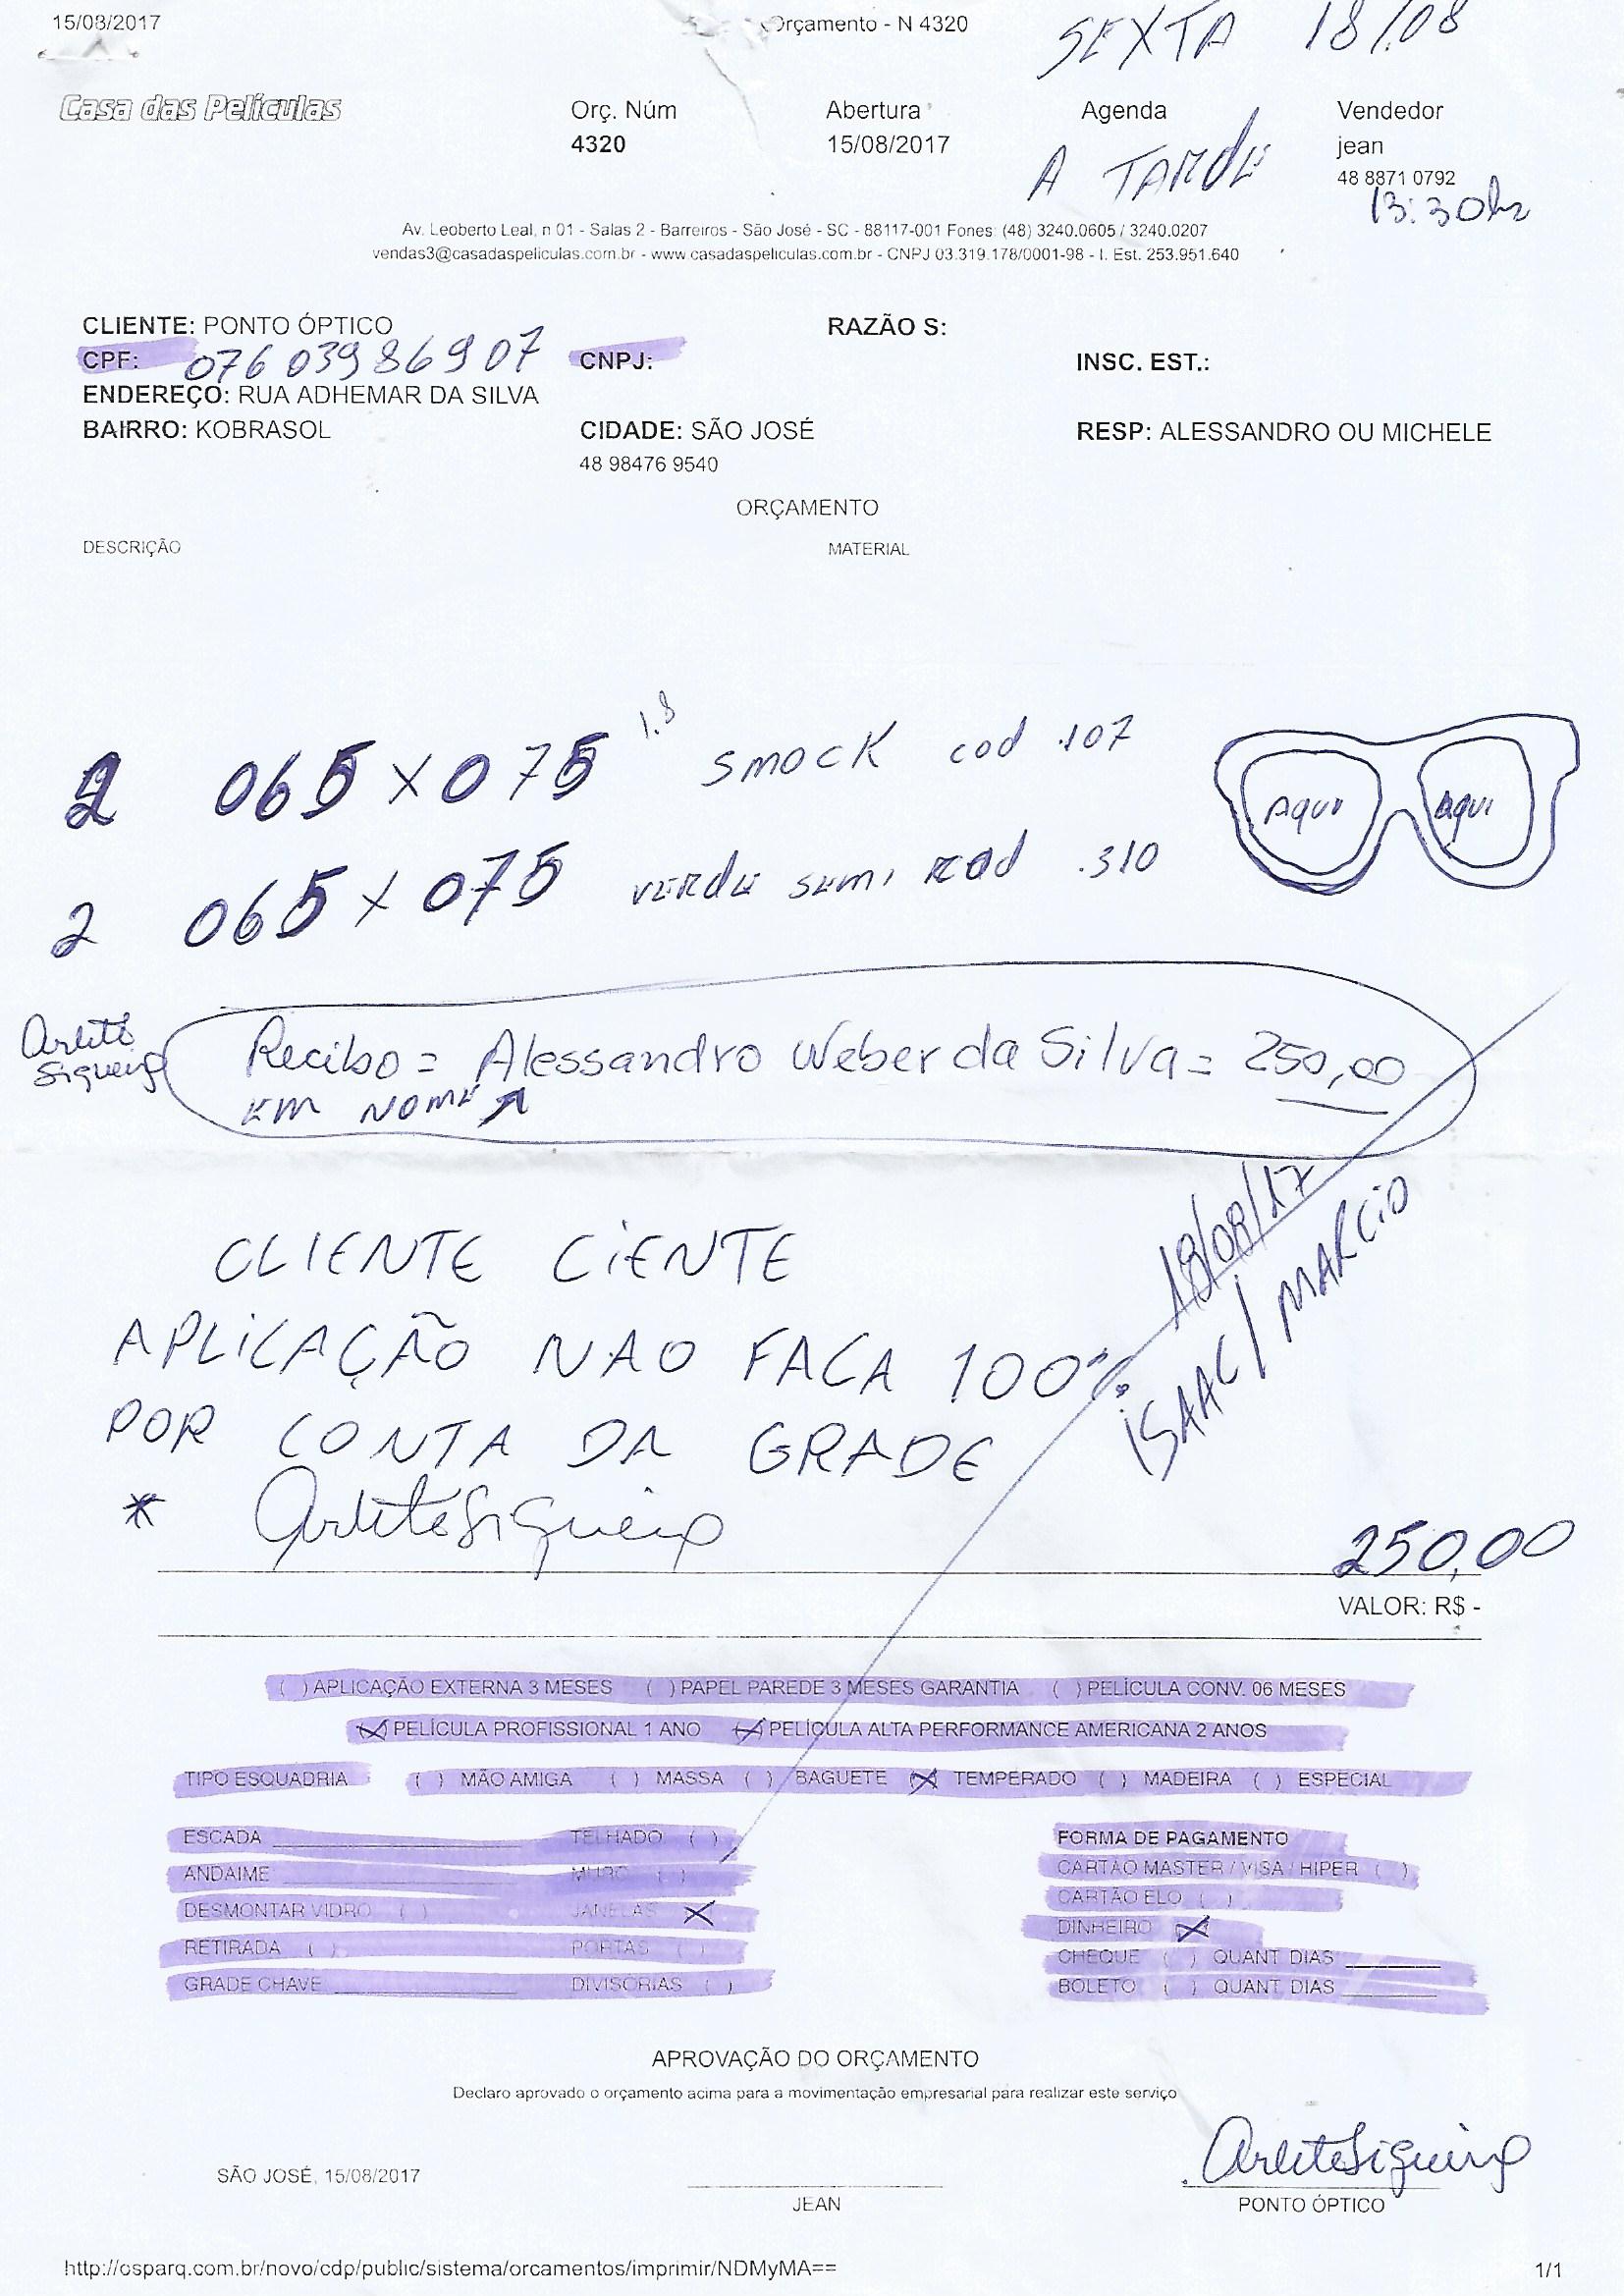 15/08/2017 Orçamento - N 4320
SEXTA 18/08
Casa das Películas
Orç. Núm Abertura Agenda Vendedor
4320 15/08/2017 A TARDE jean
48 8871 0792
13:30hs
Av. Leoberto Leal, n 01 - Salas 2 - Barreiros - São José - SC - 88117-001 Fones: (48) 3240.0605 / 3240.0207
vendas3@casadaspeliculas.com.br - www.casadaspeliculas.com.br - CNPJ 03.319.178/0001-98 - I. Est. 253.951.640
CLIENTE: PONTO ÓPTICO RAZÃO S:
CPF: 076 039 869 07 CNPJ: INSC. EST.:
ENDEREÇO: RUA ADHEMAR DA SILVA
BAIRRO: KOBRASOL CIDADE: SÃO JOSÉ RESP: ALESSANDRO OU MICHELE
48 98476 9540
ORÇAMENTO
DESCRIÇÃO MATERIAL
2 065 x 075 1.8 SMOCK cod .107
Aqui Aqui
2 065 x 075 VERDE SEMI cod .310
Arlete Siqueira
Recibo = Alessandro Weber da Silva = 250,00
EM NOME
18/08/17
ISAAC / MARCIO
CLIENTE CIENTE
APLICAÇÃO NAO FACA 100%
POR CONTA DA GRADE
* Arlete Siqueira
250,00
VALOR: R$ -
( ) APLICAÇÃO EXTERNA 3 MESES ( ) PAPEL PAREDE 3 MESES GARANTIA ( ) PELÍCULA CONV. 06 MESES
(X) PELÍCULA PROFISSIONAL 1 ANO (X) PELÍCULA ALTA PERFORMANCE AMERICANA 2 ANOS
TIPO ESQUADRIA ( ) MÃO AMIGA ( ) MASSA ( ) BAGUETE (X) TEMPERADO ( ) MADEIRA ( ) ESPECIAL
ESCADA ____ TELHADO ( ) FORMA DE PAGAMENTO
ANDAIME ____ MURO ( ) CARTÃO MASTER / VISA / HIPER ( )
DESMONTAR VIDRO ( ) JANELAS X CARTÃO ELO ( )
DINHEIRO X
RETIRADA ( ) PORTAS ( ) CHEQUE ( ) QUANT DIAS ____
GRADE CHAVE ____ DIVISORIAS ( ) BOLETO ( ) QUANT DIAS ____
APROVAÇÃO DO ORÇAMENTO
Declaro aprovado o orçamento acima para a movimentação empresarial para realizar este serviço
Arlete Siqueira
SÃO JOSÉ, 15/08/2017
JEAN PONTO ÓPTICO
http://osparq.com.br/novo/cdp/public/sistema/orcamentos/imprimir/NDMyMA== 1/1